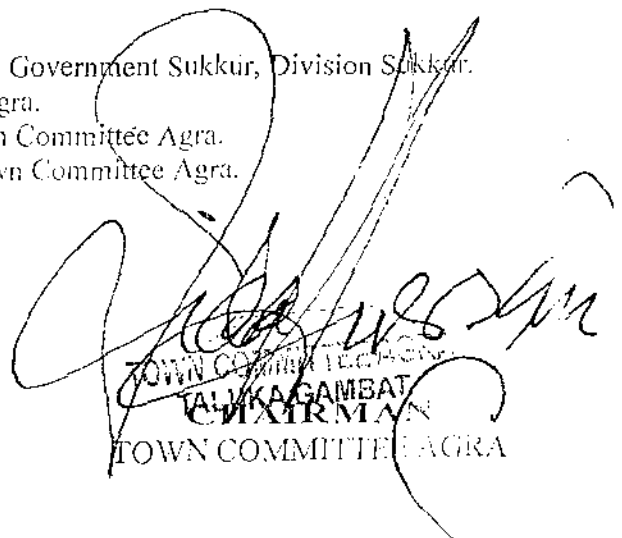 Government Sukkur, Division Sukkur.
gra.
n Committee Agra.
wn Committee Agra.
TOWN COMMITTEE AGRA
TALUKA GAMBAT
CHAIRMAN
TOWN COMMITTEE AGRA